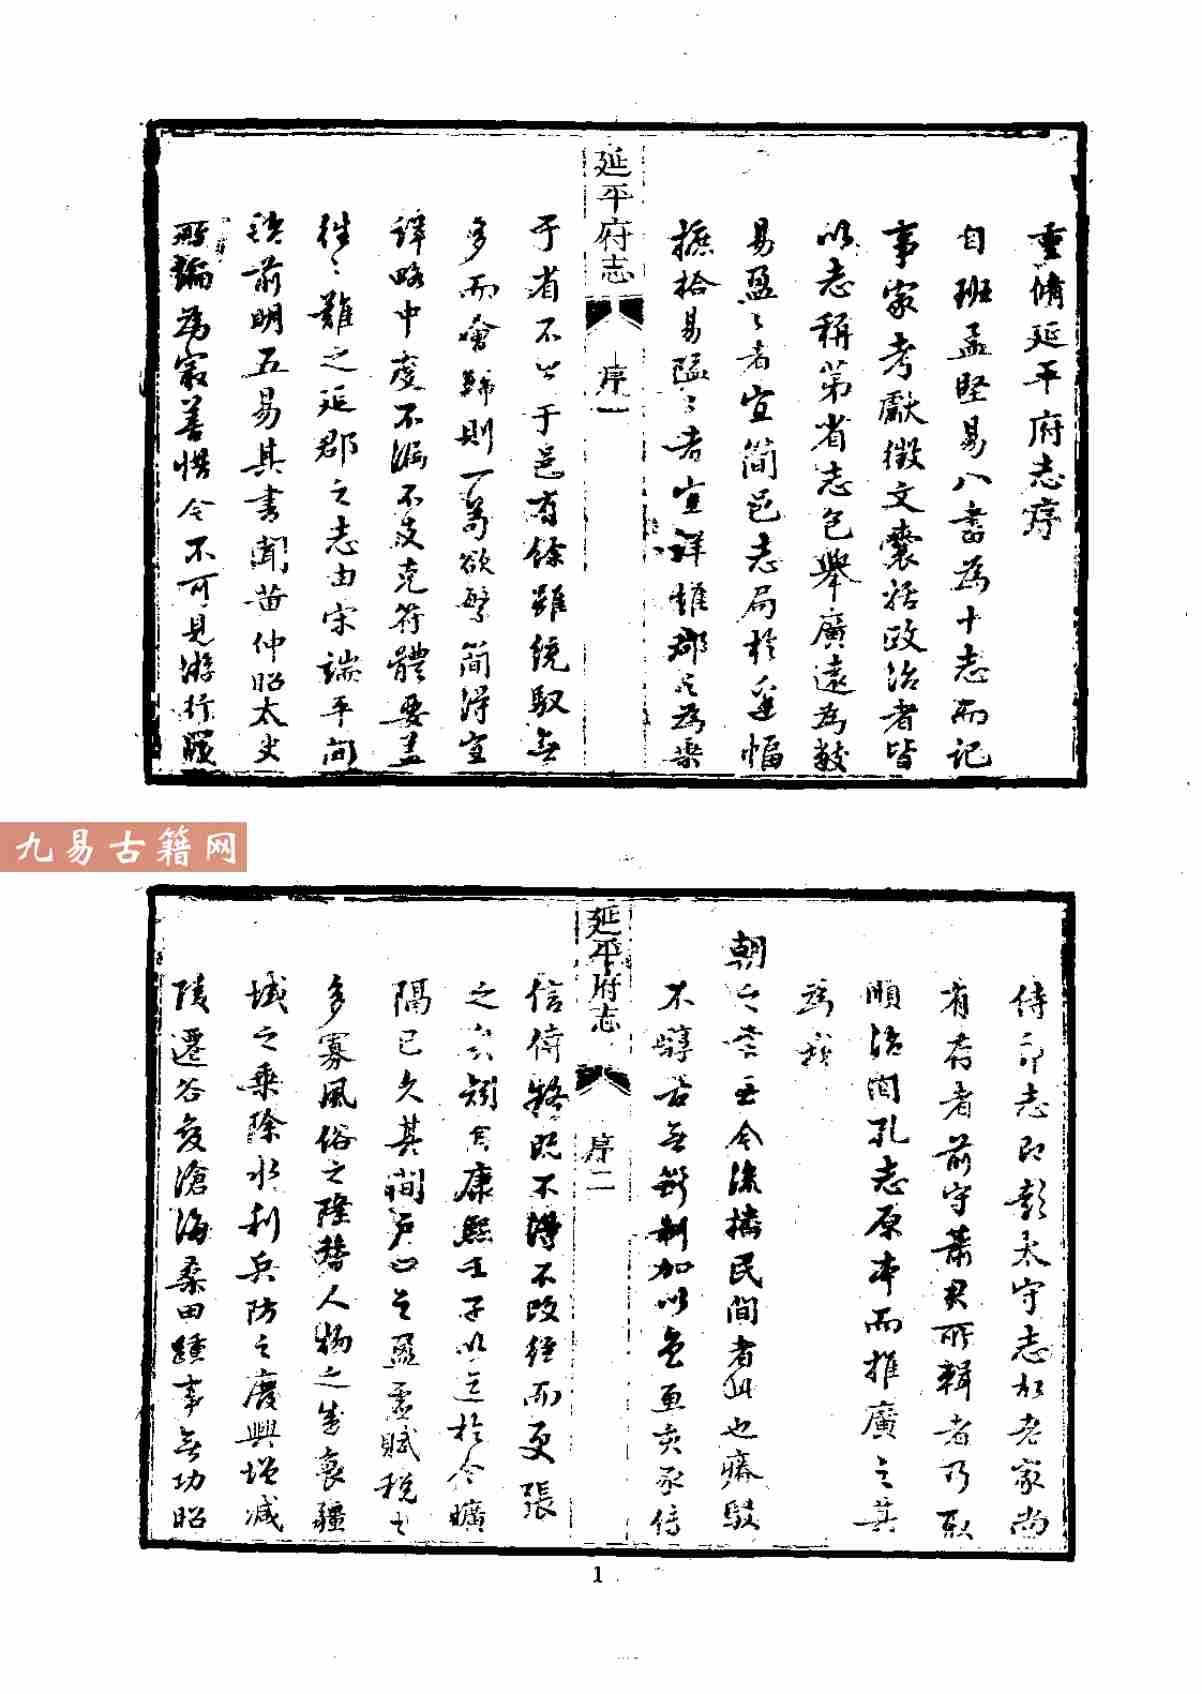 重脩延平府志序
自班孟堅易八書為十志而記
事家考獻徵文囊括政治者皆
以志稱第省志包舉廣遠為載
易盈〻者宜簡邑志局於邊幅
摭拾易隘〻者宜詳惟郡志為乘
延平府志
序一
于省不公于邑有餘雖統馭無
多而會歸則一苟欲繁簡得宜
詳略中度不漏不支克符體要蓋
往〻難之延郡之志由宋端平間
前明五易其書聞黃仲昭太史
所編為最善惜今不可見游行
九易古籍网
侍郎志即彭太守志故老家尚
有存者前守蕭君所輯者乃取
順治間孔志原本而推廣之其
為我
朝之
至今流播民間者此也瘠駁
不醇古無
制加以魚亥承傳
延平府志
序二
信傳疑既不得不改絃而更張
之矣矧自康熙壬子以迄於今曠
隔已久其間戶口之盈虛賦稅之
多寡風俗之隆替人物之盛衰疆
域之乘除水利兵防之廢興增減
陵遷谷變滄海桑田踵事無功昭
1